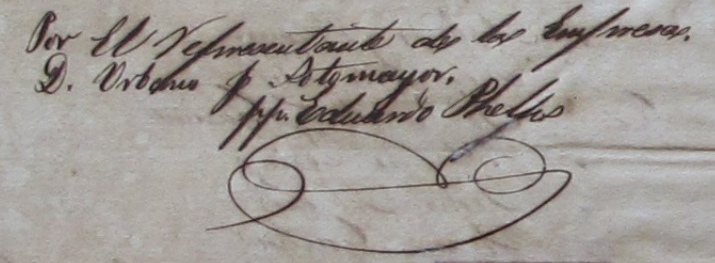 Por El Representante de la Empresa.
D. Urbano F. Sotomayor.
p.p. Eduardo Phellos